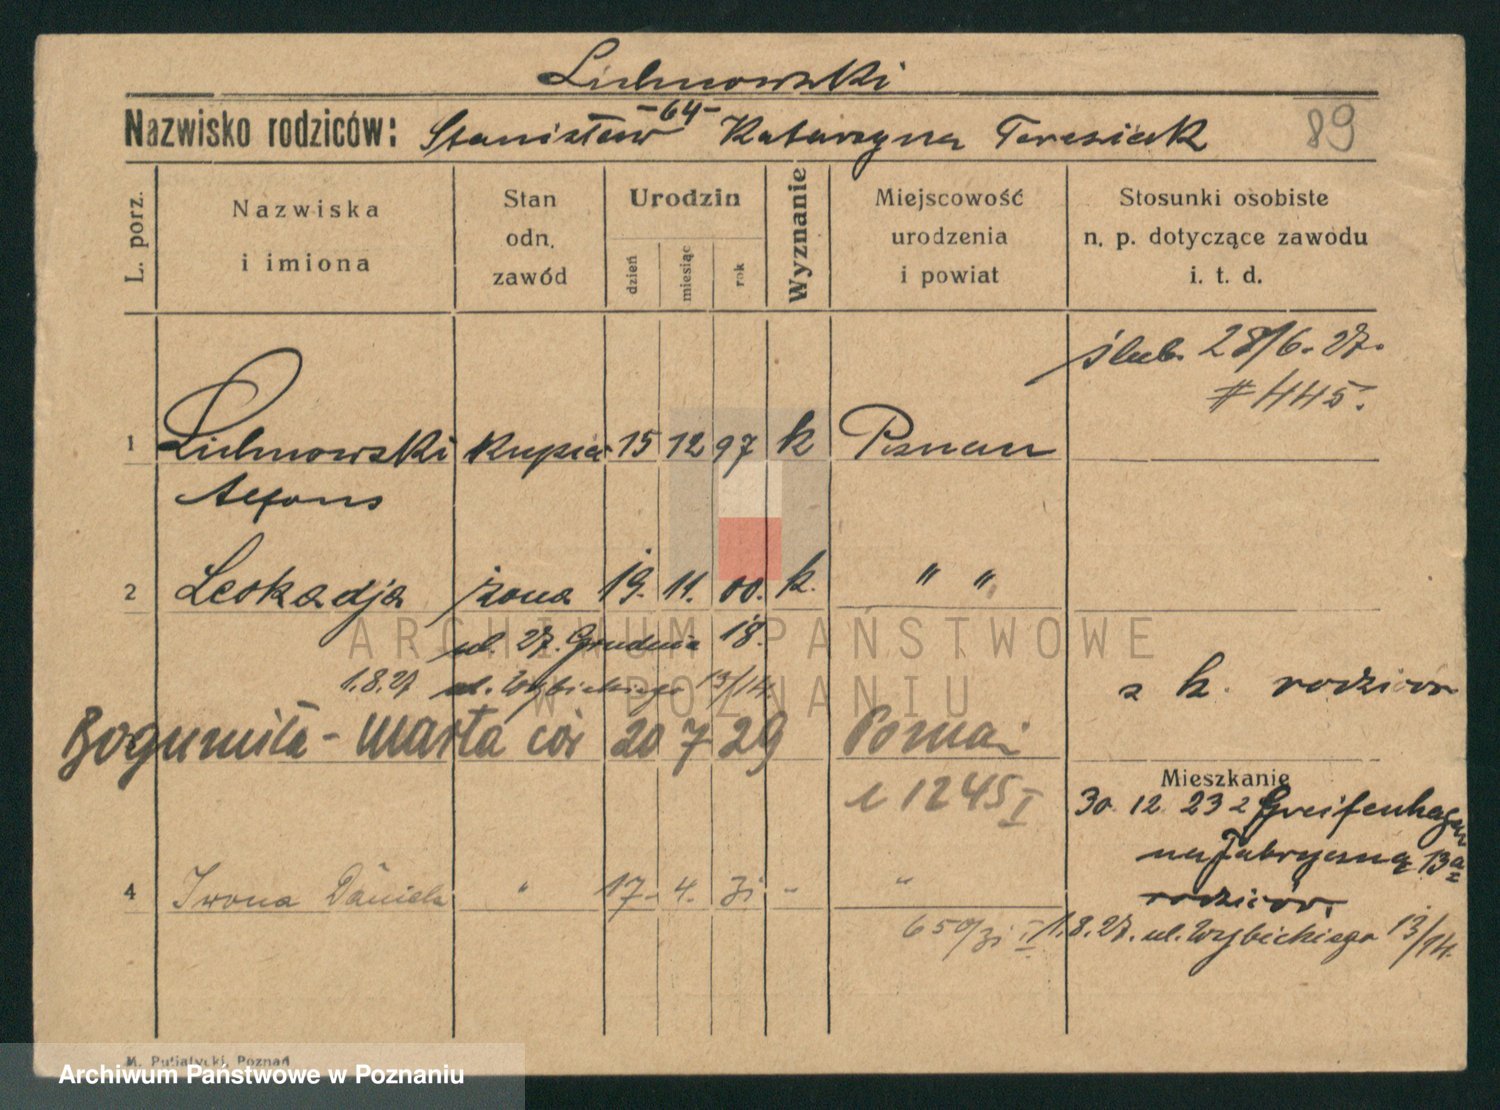 Lubnowski
Nazwisko rodziców: Stanisław -64- Katarzyna Teresiak 89
L. porz.
Nazwiska
i imiona
Stan
odn.
zawód
Urodzin
dzień
miesiąc
rok
Wyznanie
Miejscowość
urodzenia
i powiat
Stosunki osobiste
n. p. dotyczące zawodu
i. t. d.
ślub. 28/6. 27.
# 445.
1 Lubnowski kupiec 15 12 97 k Poznań
Alfons
2 Leokadja żona 19. 11. 00. k. " "
ul. 27. Grudnia 18.
1.8.27 ul. Wybickiego 13/14.
z k. rodziców
Bogumiła - Marta cór 20 7 29 Poznań
1245 I
Mieszkanie
30. 12. 23 z Greifenhagen
na Fabryczną 13a
rodziców.
4 Iwona Daniela " 17. 4. 31 " "
650/31 I
1.8.27. ul. Wybickiego 13/14.
M. Putiatycki, Poznań
ARCHIWUM PAŃSTWOWE
W POZNANIU
Archiwum Państwowe w Poznaniu